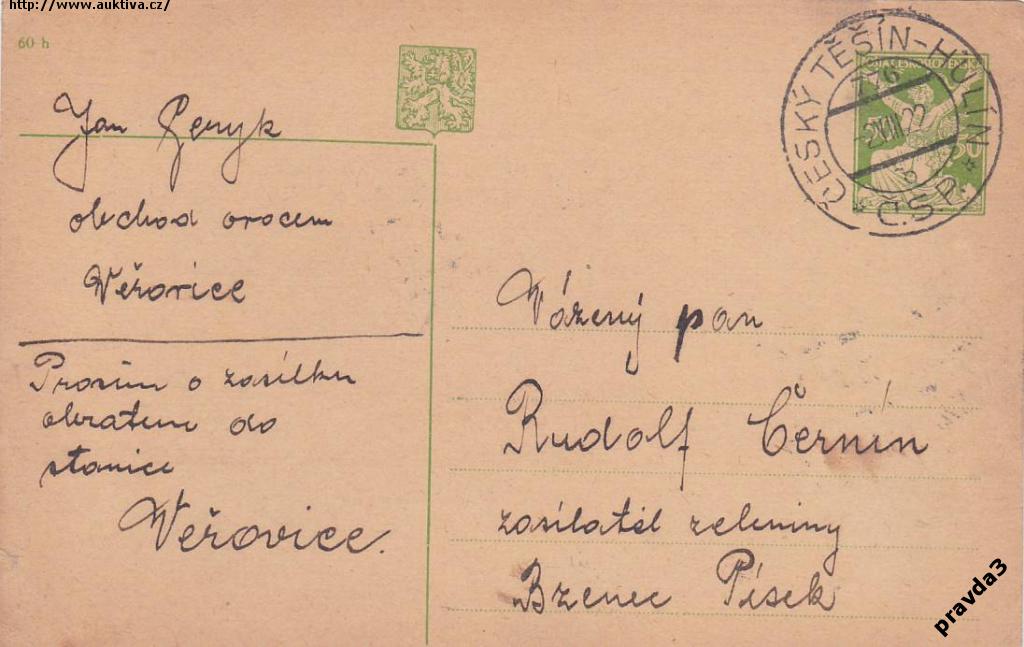 http://www.auktiva.cz/
60 h
Jan
obchod ovocem
Veřovice
Prosím o zásilku
obratem do
stanice
Veřovice.
ČESKÝ TĚŠÍN-HULÍN
Č.S.P.
Vážený pan
Rudolf Černín
zasílatél zeleniny
Bzenec Písek
pravda3